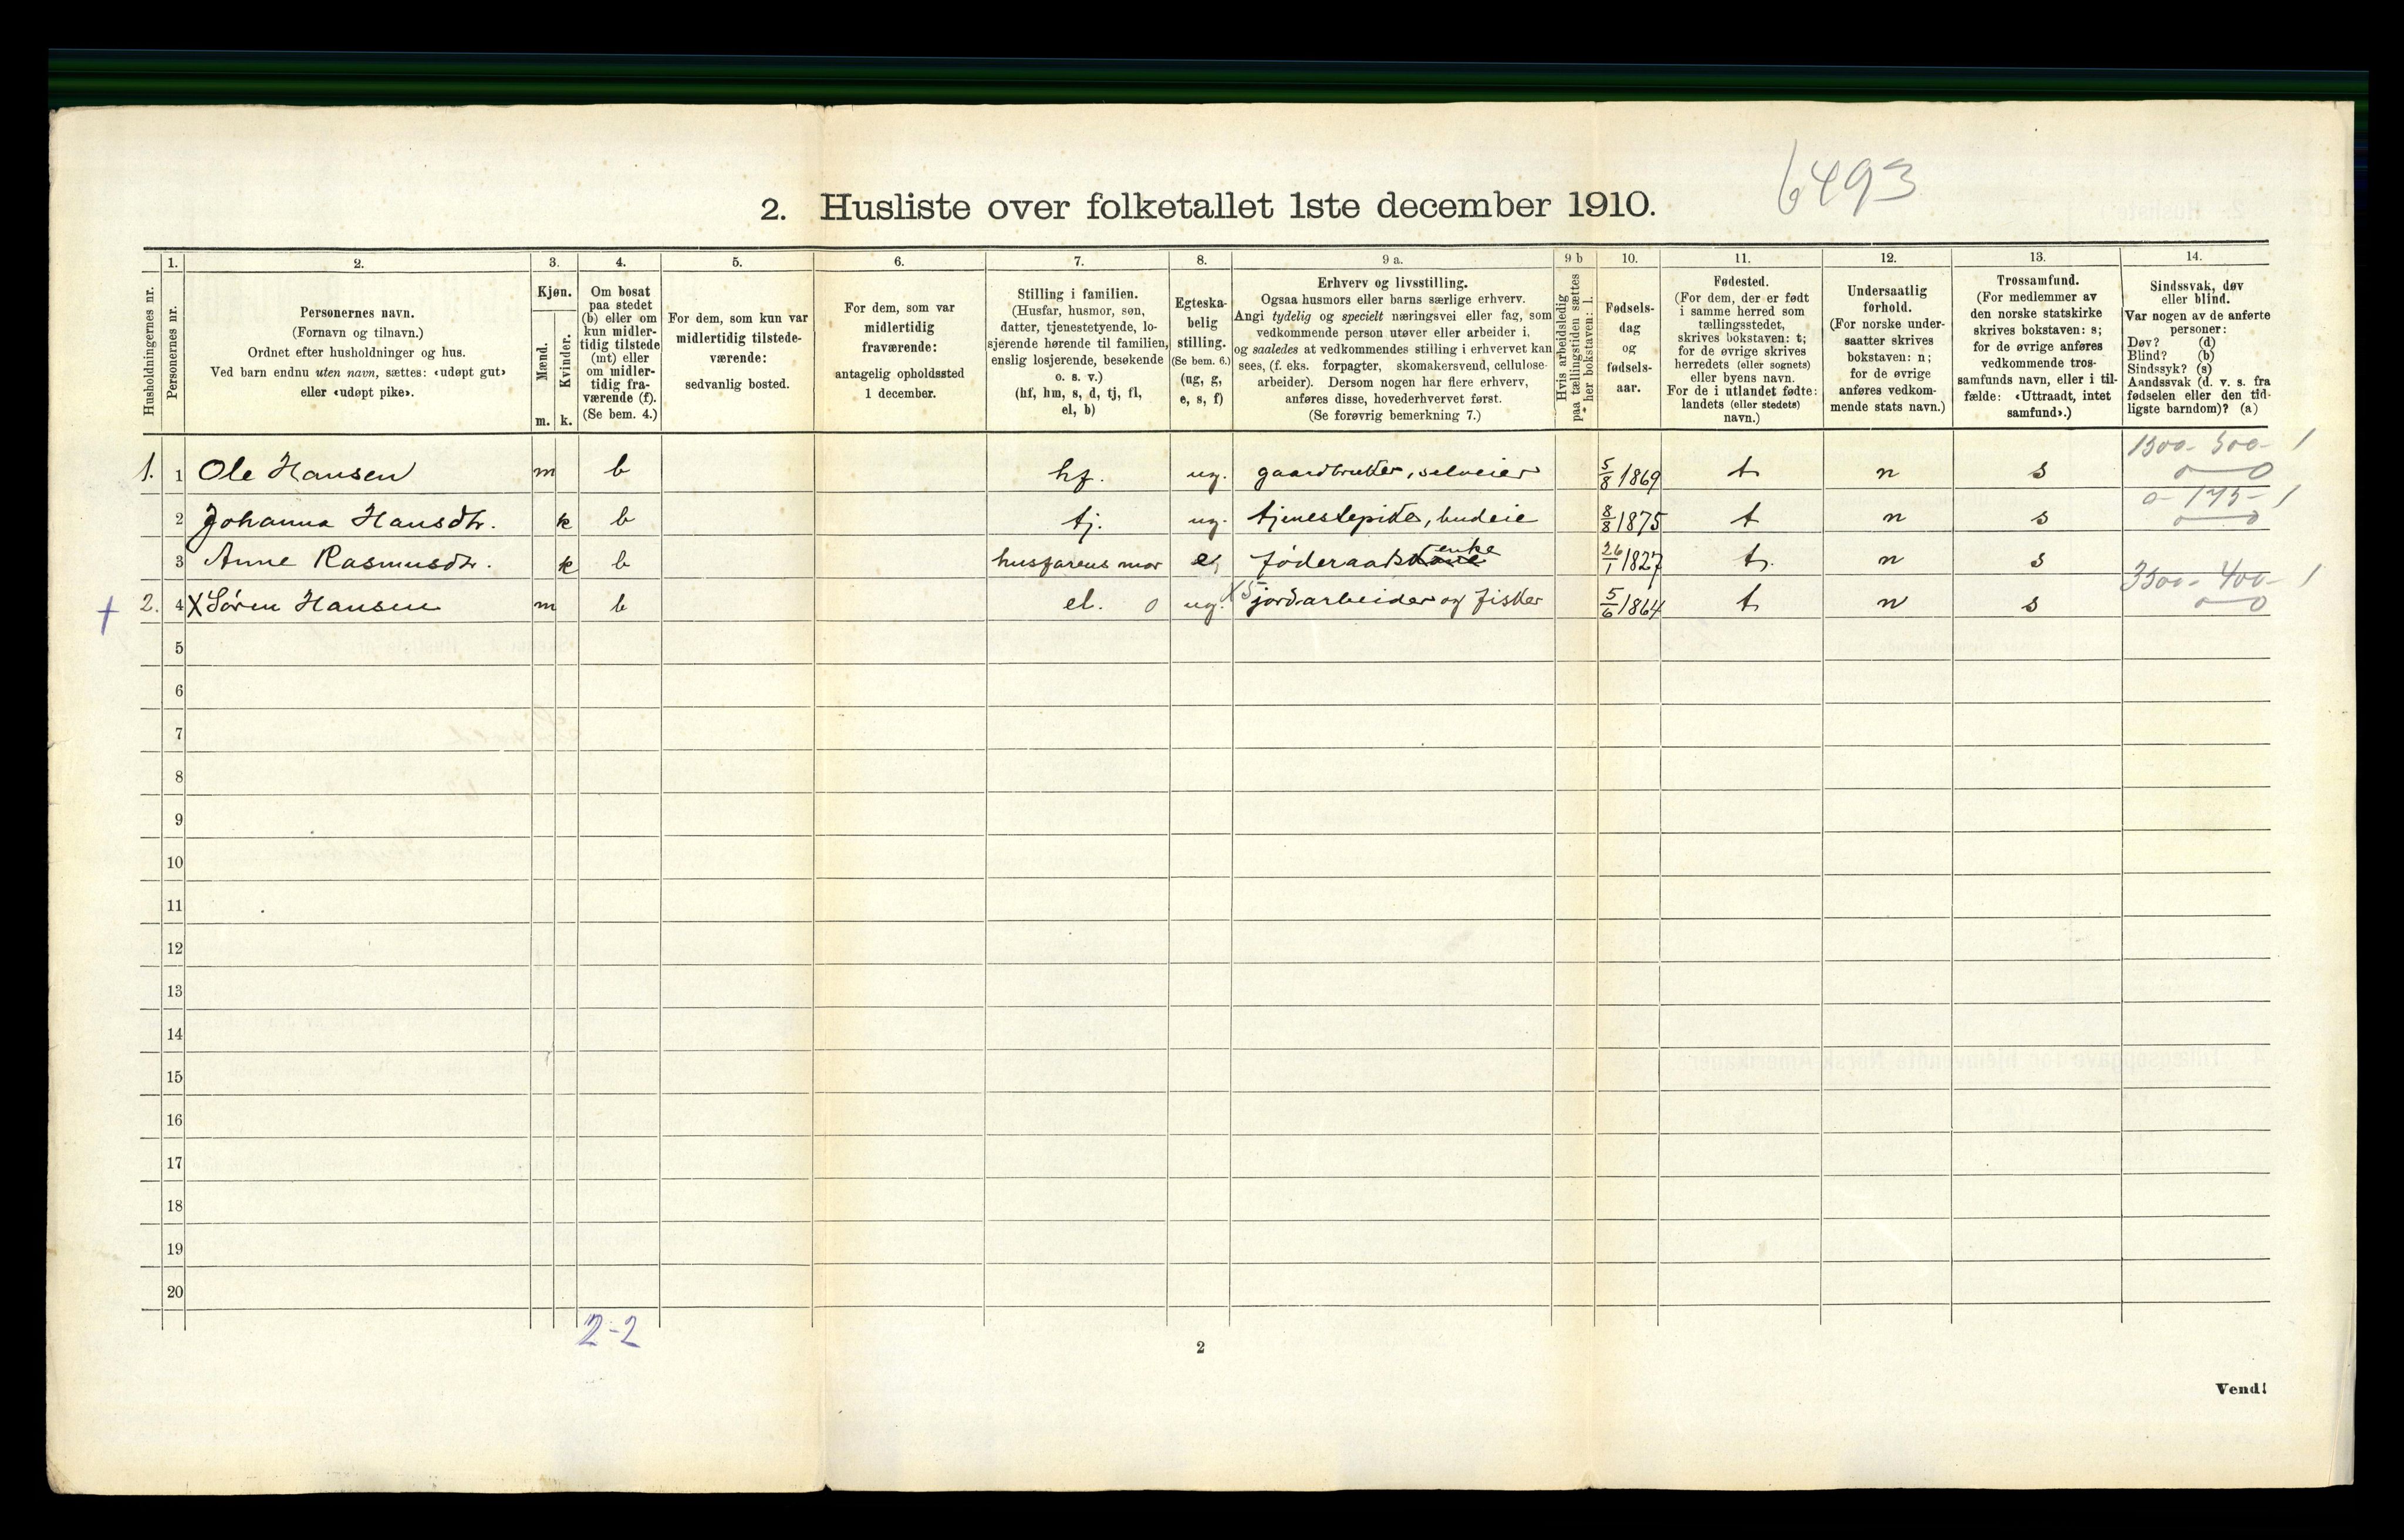 6493
2. Husliste over folketallet 1ste december 1910.
Husholdningernes nr.
1.
Personernes nr.
2.
Personernes navn.
(Fornavn og tilnavn.)
Ordnet efter husholdninger og hus.
Ved barn endnu uten navn, sættes: «udøpt gut»
eller «udøpt pike».
3.
Kjøn.
Mænd.
m.
Kvinder.
k.
4.
Om bosat
paa stedet
(b) eller om
kun midler-
tidig tilstede
(mt) eller
om midler-
tidig fra-
værende (f).
(Se bem. 4.)
5.
For dem, som kun var
midlertidig tilstede-
værende:
sedvanlig bosted.
6.
For dem, som var
midlertidig
fraværende:
antagelig opholdssted
1 december.
7.
Stilling i familien.
(Husfar, husmor, søn,
datter, tjenestetyende, lo-
sjerende hørende til familien,
enslig losjerende, besøkende
o. s. v.)
(hf, hm, s, d, tj, fl,
el, b)
8.
Egteska-
belig
stilling.
(Se bem. 6.)
(ug, g,
e, s, f)
9 a.
Erhverv og livsstilling.
Ogsaa husmors eller barns særlige erhverv.
Angi tydelig og specielt næringsvei eller fag, som
vedkommende person utøver eller arbeider i,
og saaledes at vedkommendes stilling i erhvervet kan
sees, (f. eks. forpagter, skomakersvend, cellulose-
arbeider). Dersom nogen har flere erhverv,
anføres disse, hovederhvervet først.
(Se forøvrig bemerkning 7.)
9 b
Hvis arbeidsledig
paa tællingstiden sættes
her bokstaven: l.
10.
Fødsels-
dag
og
fødsels-
aar.
11.
Fødested.
(For dem, der er født
i samme herred som
tællingsstedet,
skrives bokstaven: t;
for de øvrige skrives
herredets (eller sognets)
eller byens navn.
For de i utlandet fødte:
landets (eller stedets)
navn.)
12.
Undersaatlig
forhold.
(For norske under-
saatter skrives
bokstaven: n;
for de øvrige
anføres vedkom-
mende stats navn.)
13.
Trossamfund.
(For medlemmer av
den norske statskirke
skrives bokstaven: s;
for de øvrige anføres
vedkommende tros-
samfunds navn, eller i til-
fælde: «Uttraadt, intet
samfund».)
14.
Sindssvak, døv
eller blind.
Var nogen av de anførte
personer:
Døv? (d)
Blind? (b)
Sindssyk? (s)
Aandssvak (d. v. s. fra
fødselen eller den tid-
ligste barndom)? (a)
1300- 500- 1
1. 1 Ole Hansen m b hf. ug. gaardbruker, selveier 5/8 1869 t n s 0 0
0- 175- 1
2 Johanna Hansdtr. k b tj. ug. tjenestepike, budeie 8/8 1875 t n s 0 0
3 Anne Rasmusdtr. k b husfarens mor e, føderaadskone enke 26/1 1827 t. n s
3300- 400- 1
+ 2. 4 X Søren Hansen m b el. 0 ug. X5 jordarbeider og fisker 5/6 1864 t n s 0 0
5
6
7
8
9
10
11
12
13
14
15
16
17
18
19
20
2-2
2
Vend!